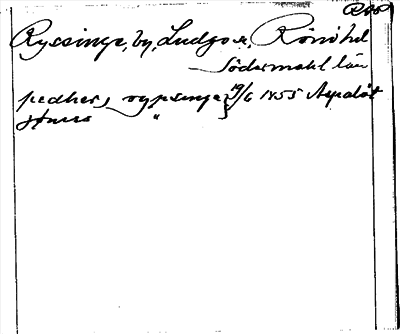 Ryssinge, by, Ludgo sn, Rönö hd
Södermanl län
pedher, rypsinge 19/6 1455 Aspalöt
jönis "